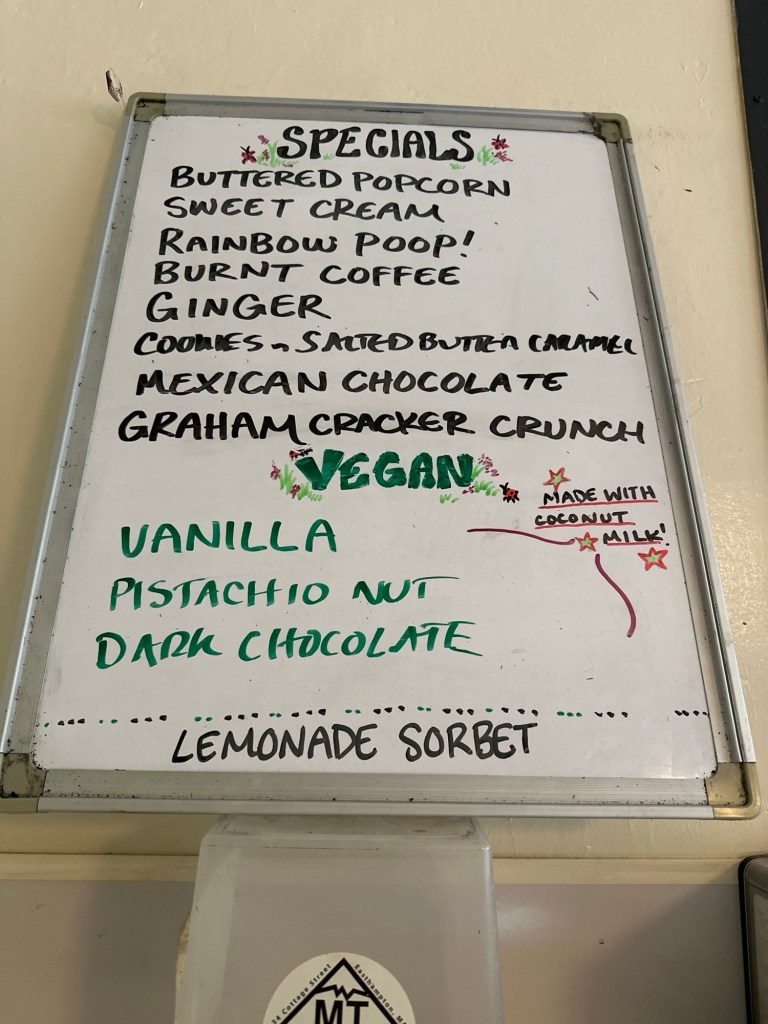 SPECIALS
BUTTERED POPCORN
SWEET CREAM
RAINBOW POOP!
BURNT COFFEE
GINGER
COOKIES n SALTED BUTTER CARAMEL
MEXICAN CHOCOLATE
GRAHAM CRACKER CRUNCH
VEGAN
MADE WITH
COCONUT
MILK!
VANILLA
PISTACHIO NUT
DARK CHOCOLATE
LEMONADE SORBET
Cottage Street Easthampton, MA
MT